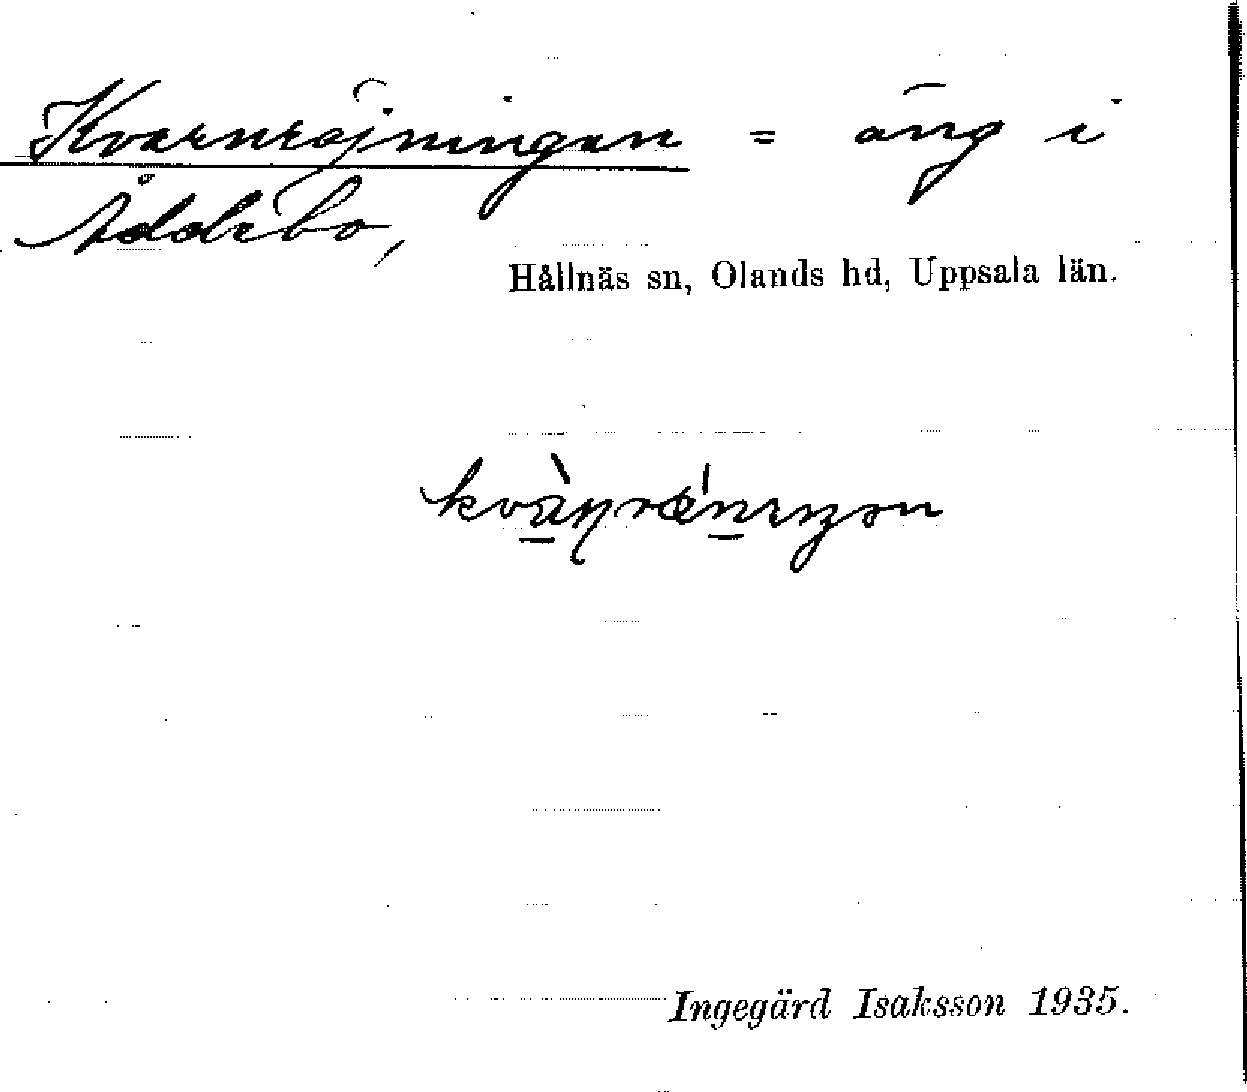 Kvarnröjningen = äng i
Åddebo,
Hållnäs sn, Olands hd, Uppsala län.
Ingegärd Isaksson 1935.